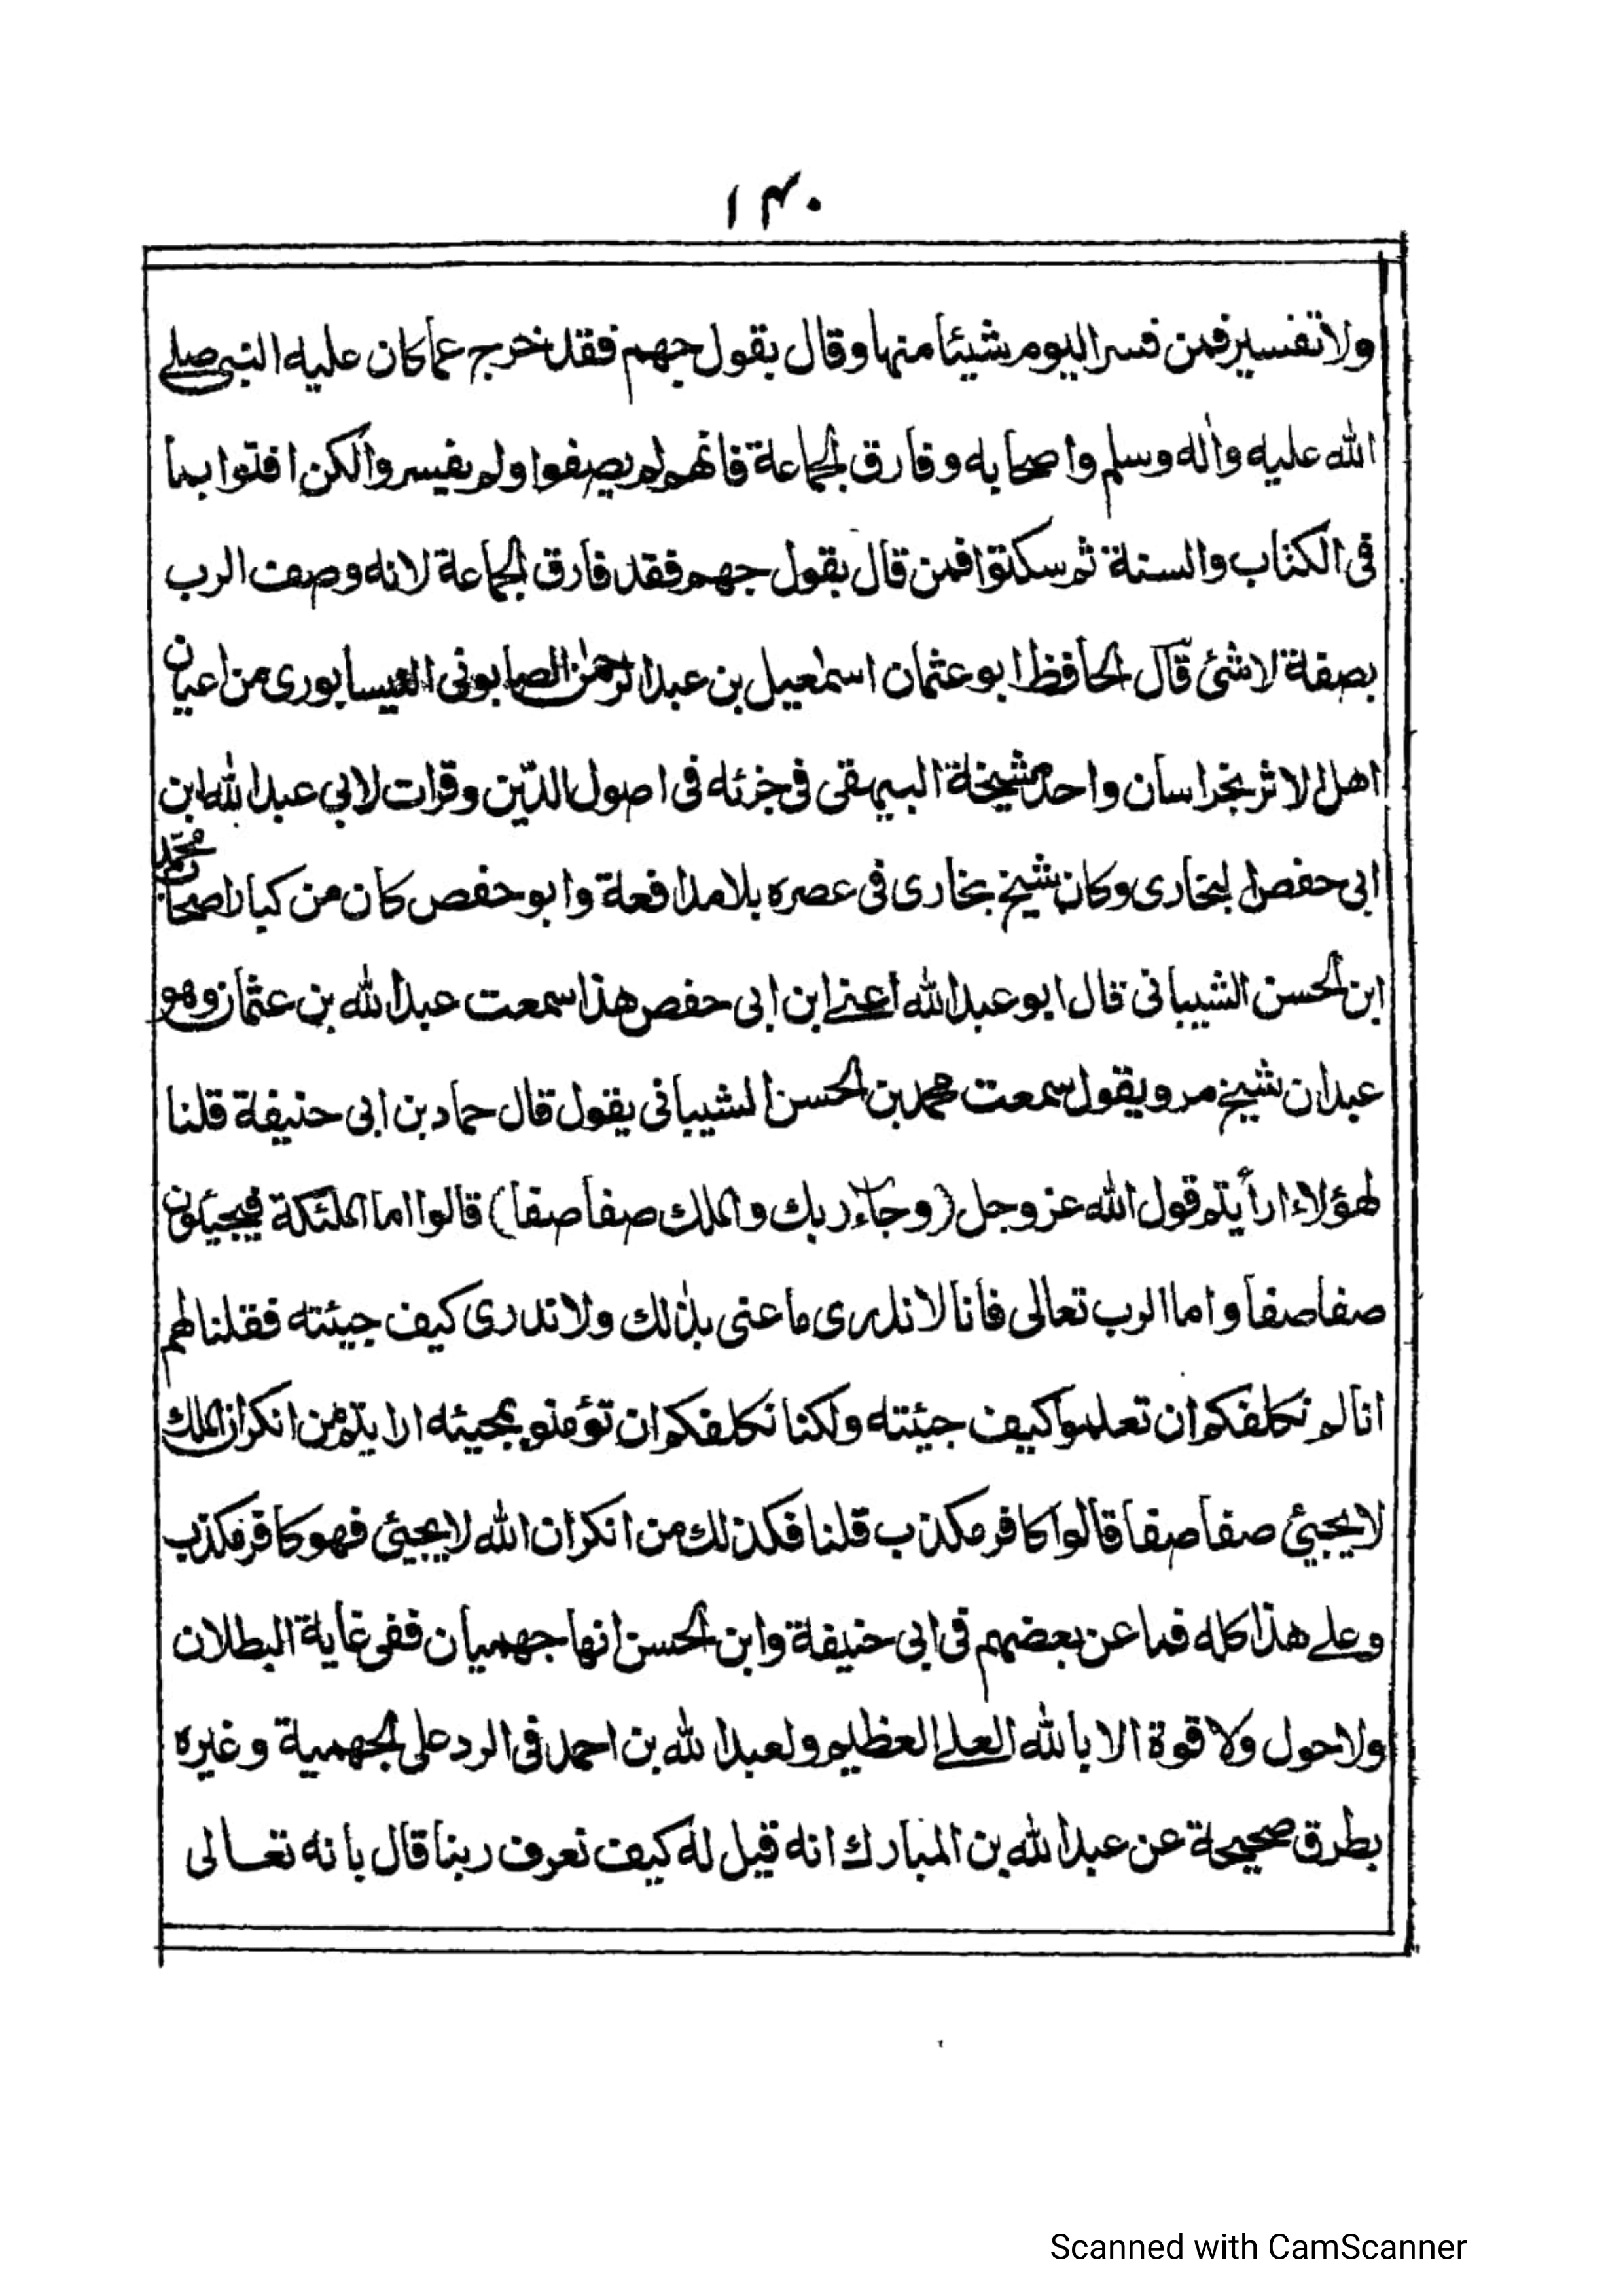 ۱۴۰
ولا تفسير فمن فسر اليوم شيئا منها وقال بقول جهم فقد خرج عما كان عليه النبي صلے
الله عليه واله وسلم واصحابه وفارق الجماعة فانهم لم يصفوا ولم يفسروا لكن افتوا بما
فى الكتاب والسنة ثم سكتوا فمن قال بقول جهم فقد فارق الجماعة لانه وصف الرب
بصفة لا شئ قال الحافظ ابو عثمان اسمٰعيل بن عبد الرحمٰن الصابونى النيسابورى من اعيان
اهل الاثر بخراسان واحد مشيخة البيهقى فى جزئه فى اصول الدّين وقرات لابي عبد الله ابن
ابى حفص البخارى وكان شيخ بخارى فى عصره بلا مدافعة وابو حفص كان من كبار اصحاب محمّد
ابن الحسن الشيبانى قال ابو عبد الله اعنے ابن ابى حفص هذا سمعت عبد الله بن عثمان وهو
عبدان شيخ مرو يقول سمعت محمد بن الحسن الشيبانى يقول قال حماد بن ابى حنيفة قلنا
لهؤلاء ارأيتم قول الله عز وجل (وجاء ربك والملك صفا صفا) قالوا اما الملئكة فيجيئون
صفا صفا واما الرب تعالى فانا لا ندرى ما عنى بذٰلك ولا ندرى كيف جيئته فقلنا لهم
انا لم نكلفكم ان تعلموا كيف جيئته ولكنا نكلفكم ان تؤمنو بمجيئه ارايتم من انكر ان الملك
لا يجيئ صفا صفا قالوا كافر مكذب قلنا فكذلك من انكر ان الله لا يجيئ فهو كافر مكذب
وعلے هذا كله فما عن بعضهم فى ابى حنيفة وابن الحسن انها جهميان ففى غاية البطلان
ولا حول ولا قوة الا بالله العلے العظيم ولعبد الله بن احمد فى الرد على الجهمية وغيره
بطرق صحيحة عن عبد الله بن المبارك انه قيل له كيف نعرف ربنا قال بانه تعالى
Scanned with CamScanner